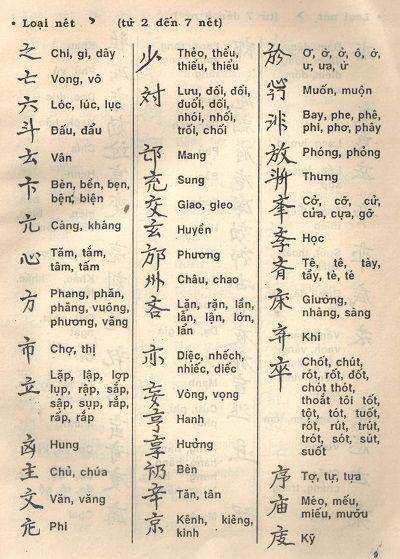 • Loại nét 丶 (từ 2 đến 7 nét)
之 Chi, gì, dây
亡 Vong, vô
六 Lóc, lúc, lục
斗 Đấu, đẩu
云 Vân
卞 Bèn, bển, bẹn,
bện, biện
亢 Cáng, kháng
心 Tăm, tắm,
tâm, tấm
方 Phang, phăn,
phăng, vuông,
phương, văng
市 Chợ, thị
立 Lặp, lập, lợp
lụp, rập, sắp,
sập, sụp, rắp,
rấp, rắp
Hung
主 Chủ, chúa
文 Văn, văng
庀 Phi
少 Thẻo, thểu,
thiếu, thiểu
対 Lưu, đối, đổi,
đuổi, dối,
nhói, nhối,
trối, chối
邙 Mang
充 Sung
交 Giao, gieo
玄 Huyền
邡 Phương
州 Châu, chao
吝 Lặn, rặn, lần,
lẫn, lận, lớn,
lẩn
亦 Diệc, nhếch,
nhiếc, diếc
妄 Vòng, vọng
亨 Hanh
享 Hưởng
Bèn
辛 Tân, tân
京 Kênh, kiêng,
kinh
於 Ơ, ở, ở, ô, ớ,
ư, ưa, ử
Muốn, muộn
Bay, phe, phê,
phi, phơ, phây
放 Phóng, phỏng
Thưng
Cở, cỡ, cử,
cửa, cựa, gỡ
斈 Học
斉 Tê, tê, tày,
tầy, tè, té
床 Giường,
nhàng, sàng
弃 Khí
卒 Chốt, chút,
rót, rốt, đốt,
chót thót,
thoắt tôi tốt,
tột, tót, tuốt,
rót, rút, trút,
trót, sót, sút,
suốt
序 Tợ, tự, tựa
庙 Méo, mếu,
miếu, mướu
庋 Kỹ